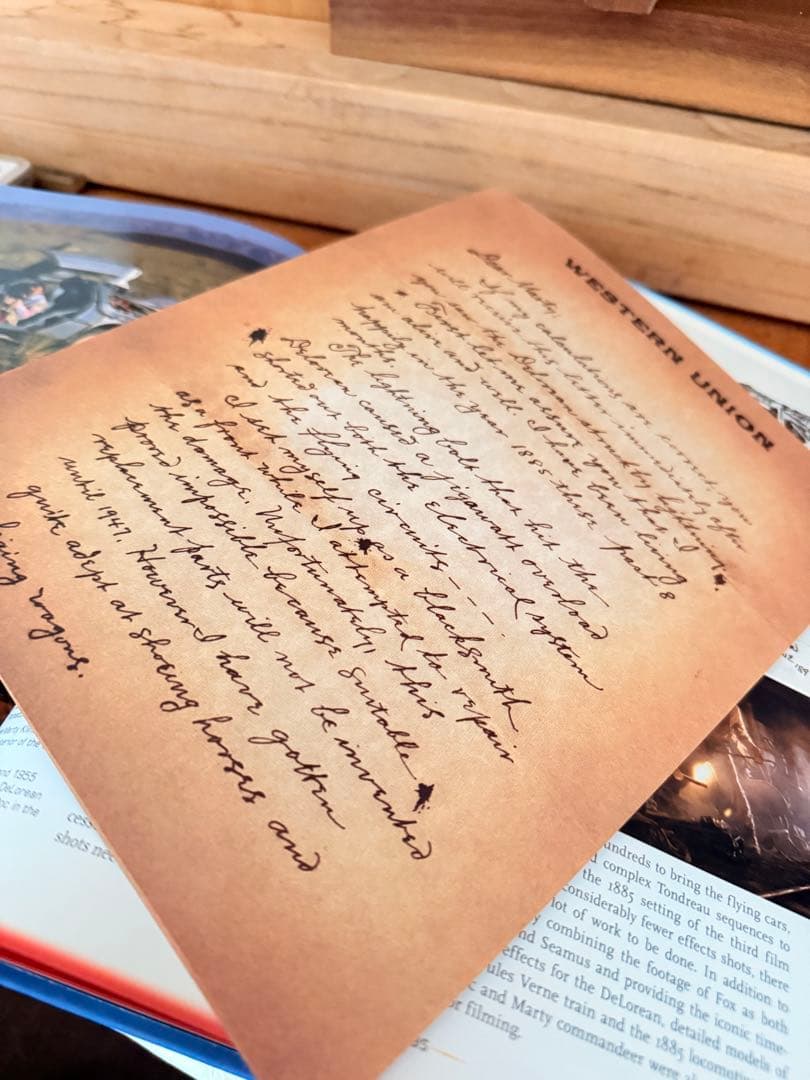 WESTERN UNION
Dear Marty,
If my calculations are correct, you
will receive this letter immediately after
you saw the DeLorean struck by lightning.
First let me assure you that I
am alive and well. I have been living
happily in the year 1885 these past 8
months.
The lightning bolt that hit the
DeLorean caused a jigawatt overload
shorted out both the electrical system
and the flying circuits ---.
I set myself up as a blacksmith
as a front while I attempted to repair
the damage. Unfortunately, this
proved impossible because suitable
replacement parts will not be invented
until 1947. However I have gotten
quite adept at shoeing horses and
wagons.
1955
DeLorean
oc in the
shots
undreds to bring the flying cars,
complex Tondreau sequences to
the 1885 setting of the third film
considerably fewer effects shots, there
lot of work to be done. In addition to
combining the footage of Fox as both
nd Seamus and providing the iconic time-
effects for the DeLorean, detailed models of
ules Verne train and the 1885 locomoti
and Marty commandeer were
filming.